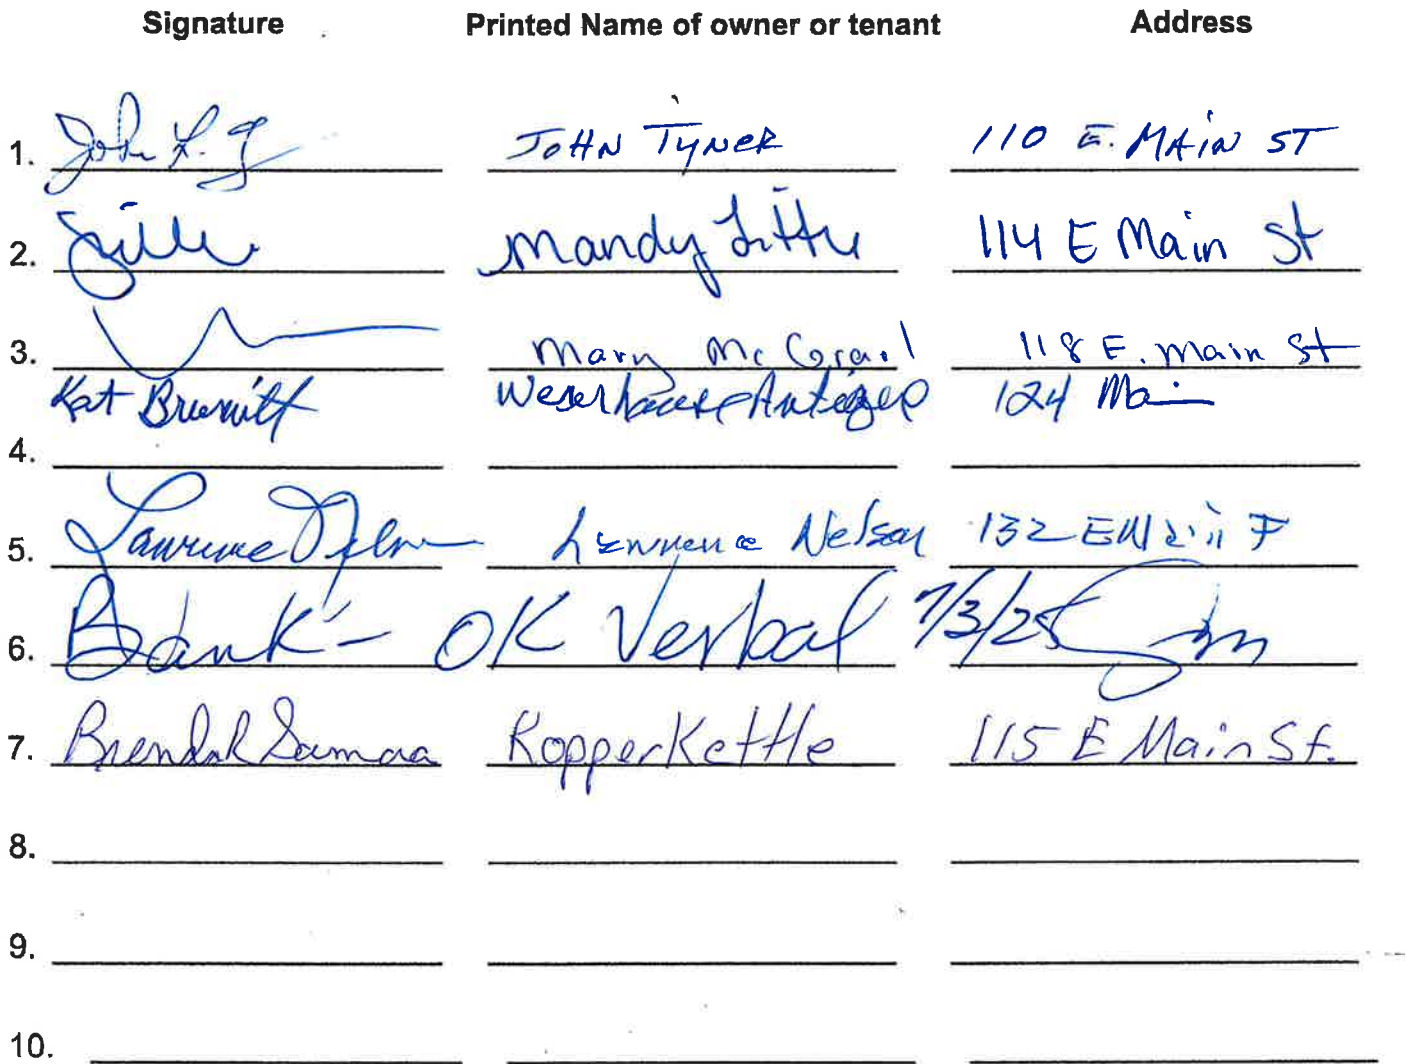 Signature Printed Name of owner or tenant Address
1. John L. JOHN TYNER 110 E. MAIN ST
2. Mandy Little 114 E Main St
3. Mary McGrail 118 E. Main St
Kat 124 Main
4.
5. Lawrence Nelson Lawrence Nelson 132 E Main
6. Bank - OK Verbal 7/3/25
7. Kopper Kettle 115 E Main St.
8.
9.
10.